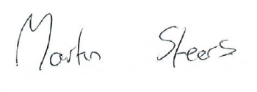 Martin Steers